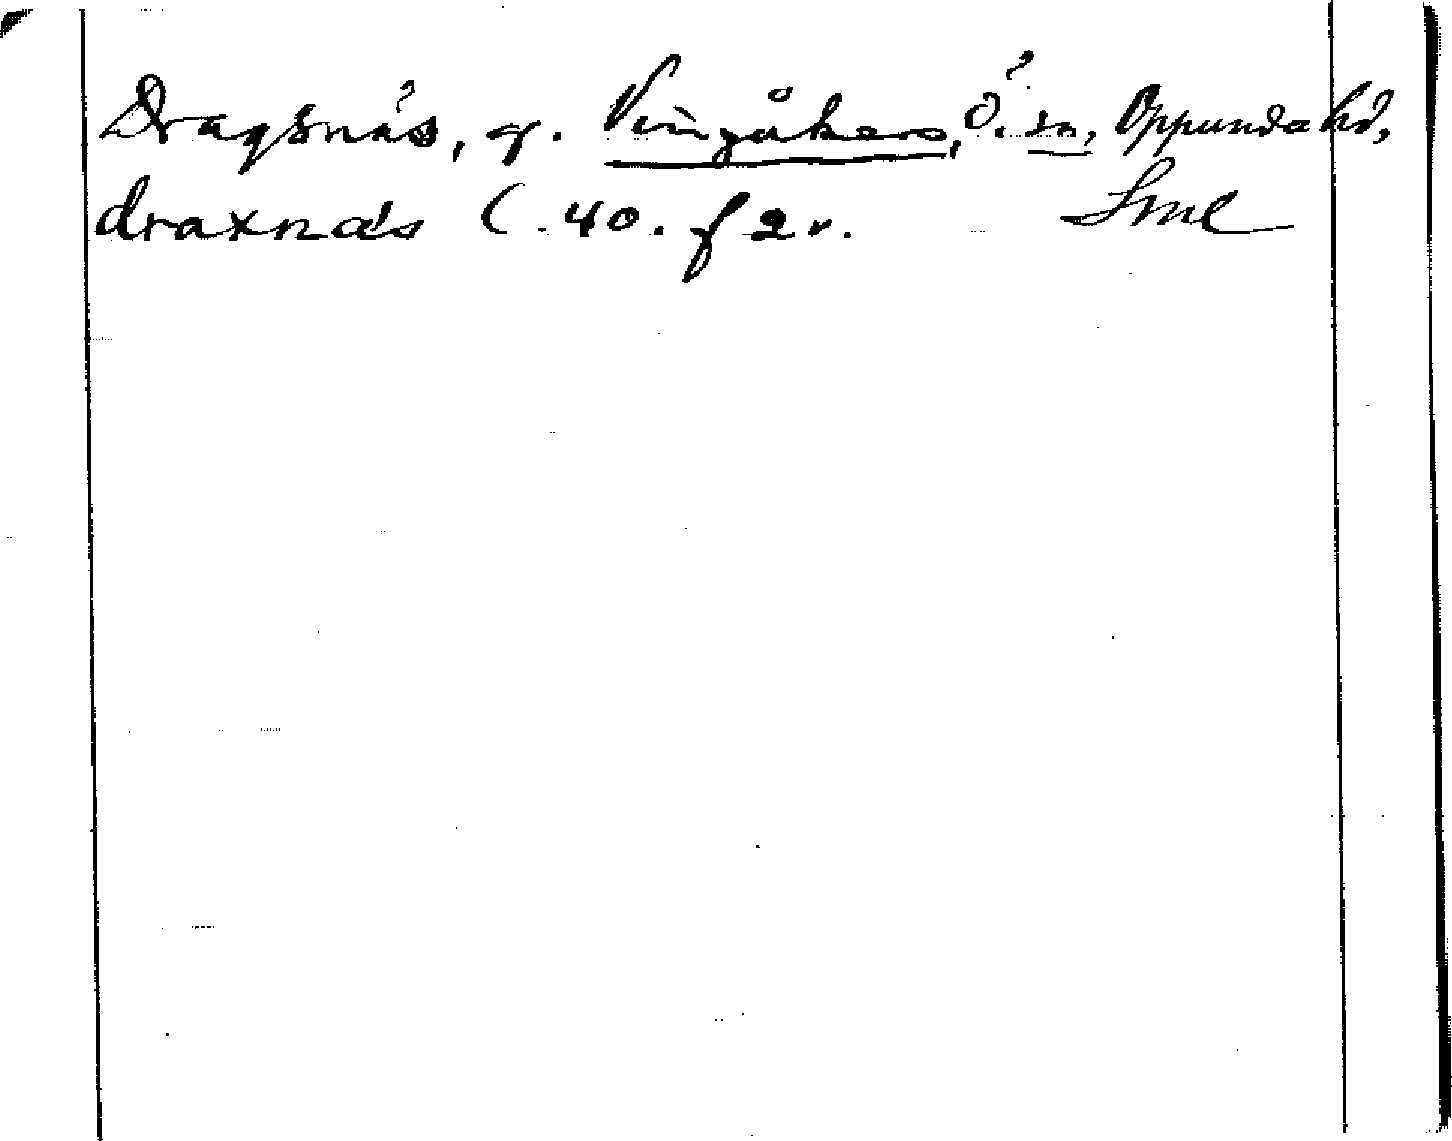 Dragsnäs, g. Vingåkers, Ö. sn, Oppunda hd,
draxnäs C. 40. f 2v. Sml